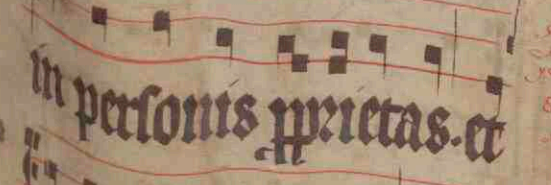 in personis pprietas. et